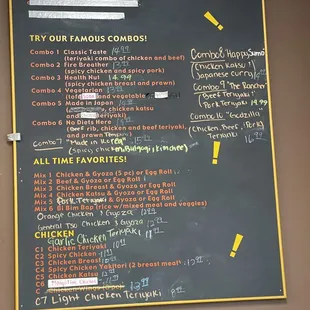 TRY OUR FAMOUS COMBOS!
Combo 1 Classic Taste 14.99
(teriyaki combo of chicken and beef)
Combo 2 Fire Breather
(spicy chicken and spicy pork)
Combo 3 Health Nut 14.99
(spicy chicken breast and prawn)
Combo 4 Vegetarian
and vegetable
Combo 5 Made in Japan
chicken katsu
and teriyaki)
Combo 6 No Diets Here
(Beef rib, chicken and beef teriyaki,
and prawn Tempura)
Combo 7 "Made in Korea"
(Spicy chicken, Bulgogi, kimchee)
Combo 8 Happy Sumo
(Chicken katsu,
Japanese curry)
Combo 9 "The Rancho"
(Beef Teriyaki,
Pork Teriyaki 19.99
Combo 10 "Godzilla"
(Chicken, Beef, Pork
Teriyaki
ALL TIME FAVORITES!
Mix 1 Chicken & Gyoza (5 pc) or Egg Roll
Mix 2 Beef & Gyoza or Egg Roll
Mix 3 Chicken Breast & Gyoza or Egg Roll
Mix 4 Chicken Katsu & Gyoza or Egg Roll
Mix 5 Pork Teriyaki & Gyoza or Egg Roll
Mix 6 Bi Bim Bap (rice w/mixed meat and veggies)
Orange Chicken & Gyoza
General Tso Chicken & Gyoza
CHICKEN
Garlic Chicken Teriyaki
C1 Chicken Teriyaki
C2 Spicy Chicken
C3 Chicken Breast
C4 Spicy Chicken Yakitori (2 breast meat)
C5 Chicken Katsu
C6
C7 Light Chicken Teriyaki